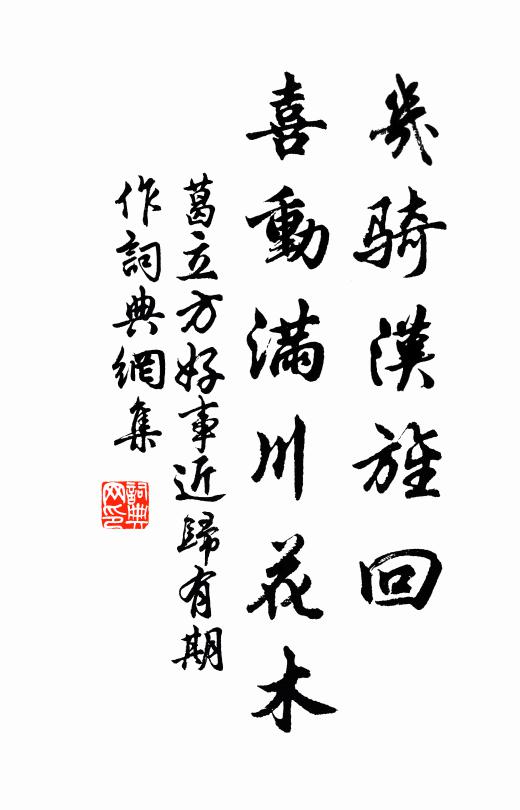 幾騎漢旌回
喜動滿川花木
葛立方好事近歸有期
作詞典網集
詞典網印